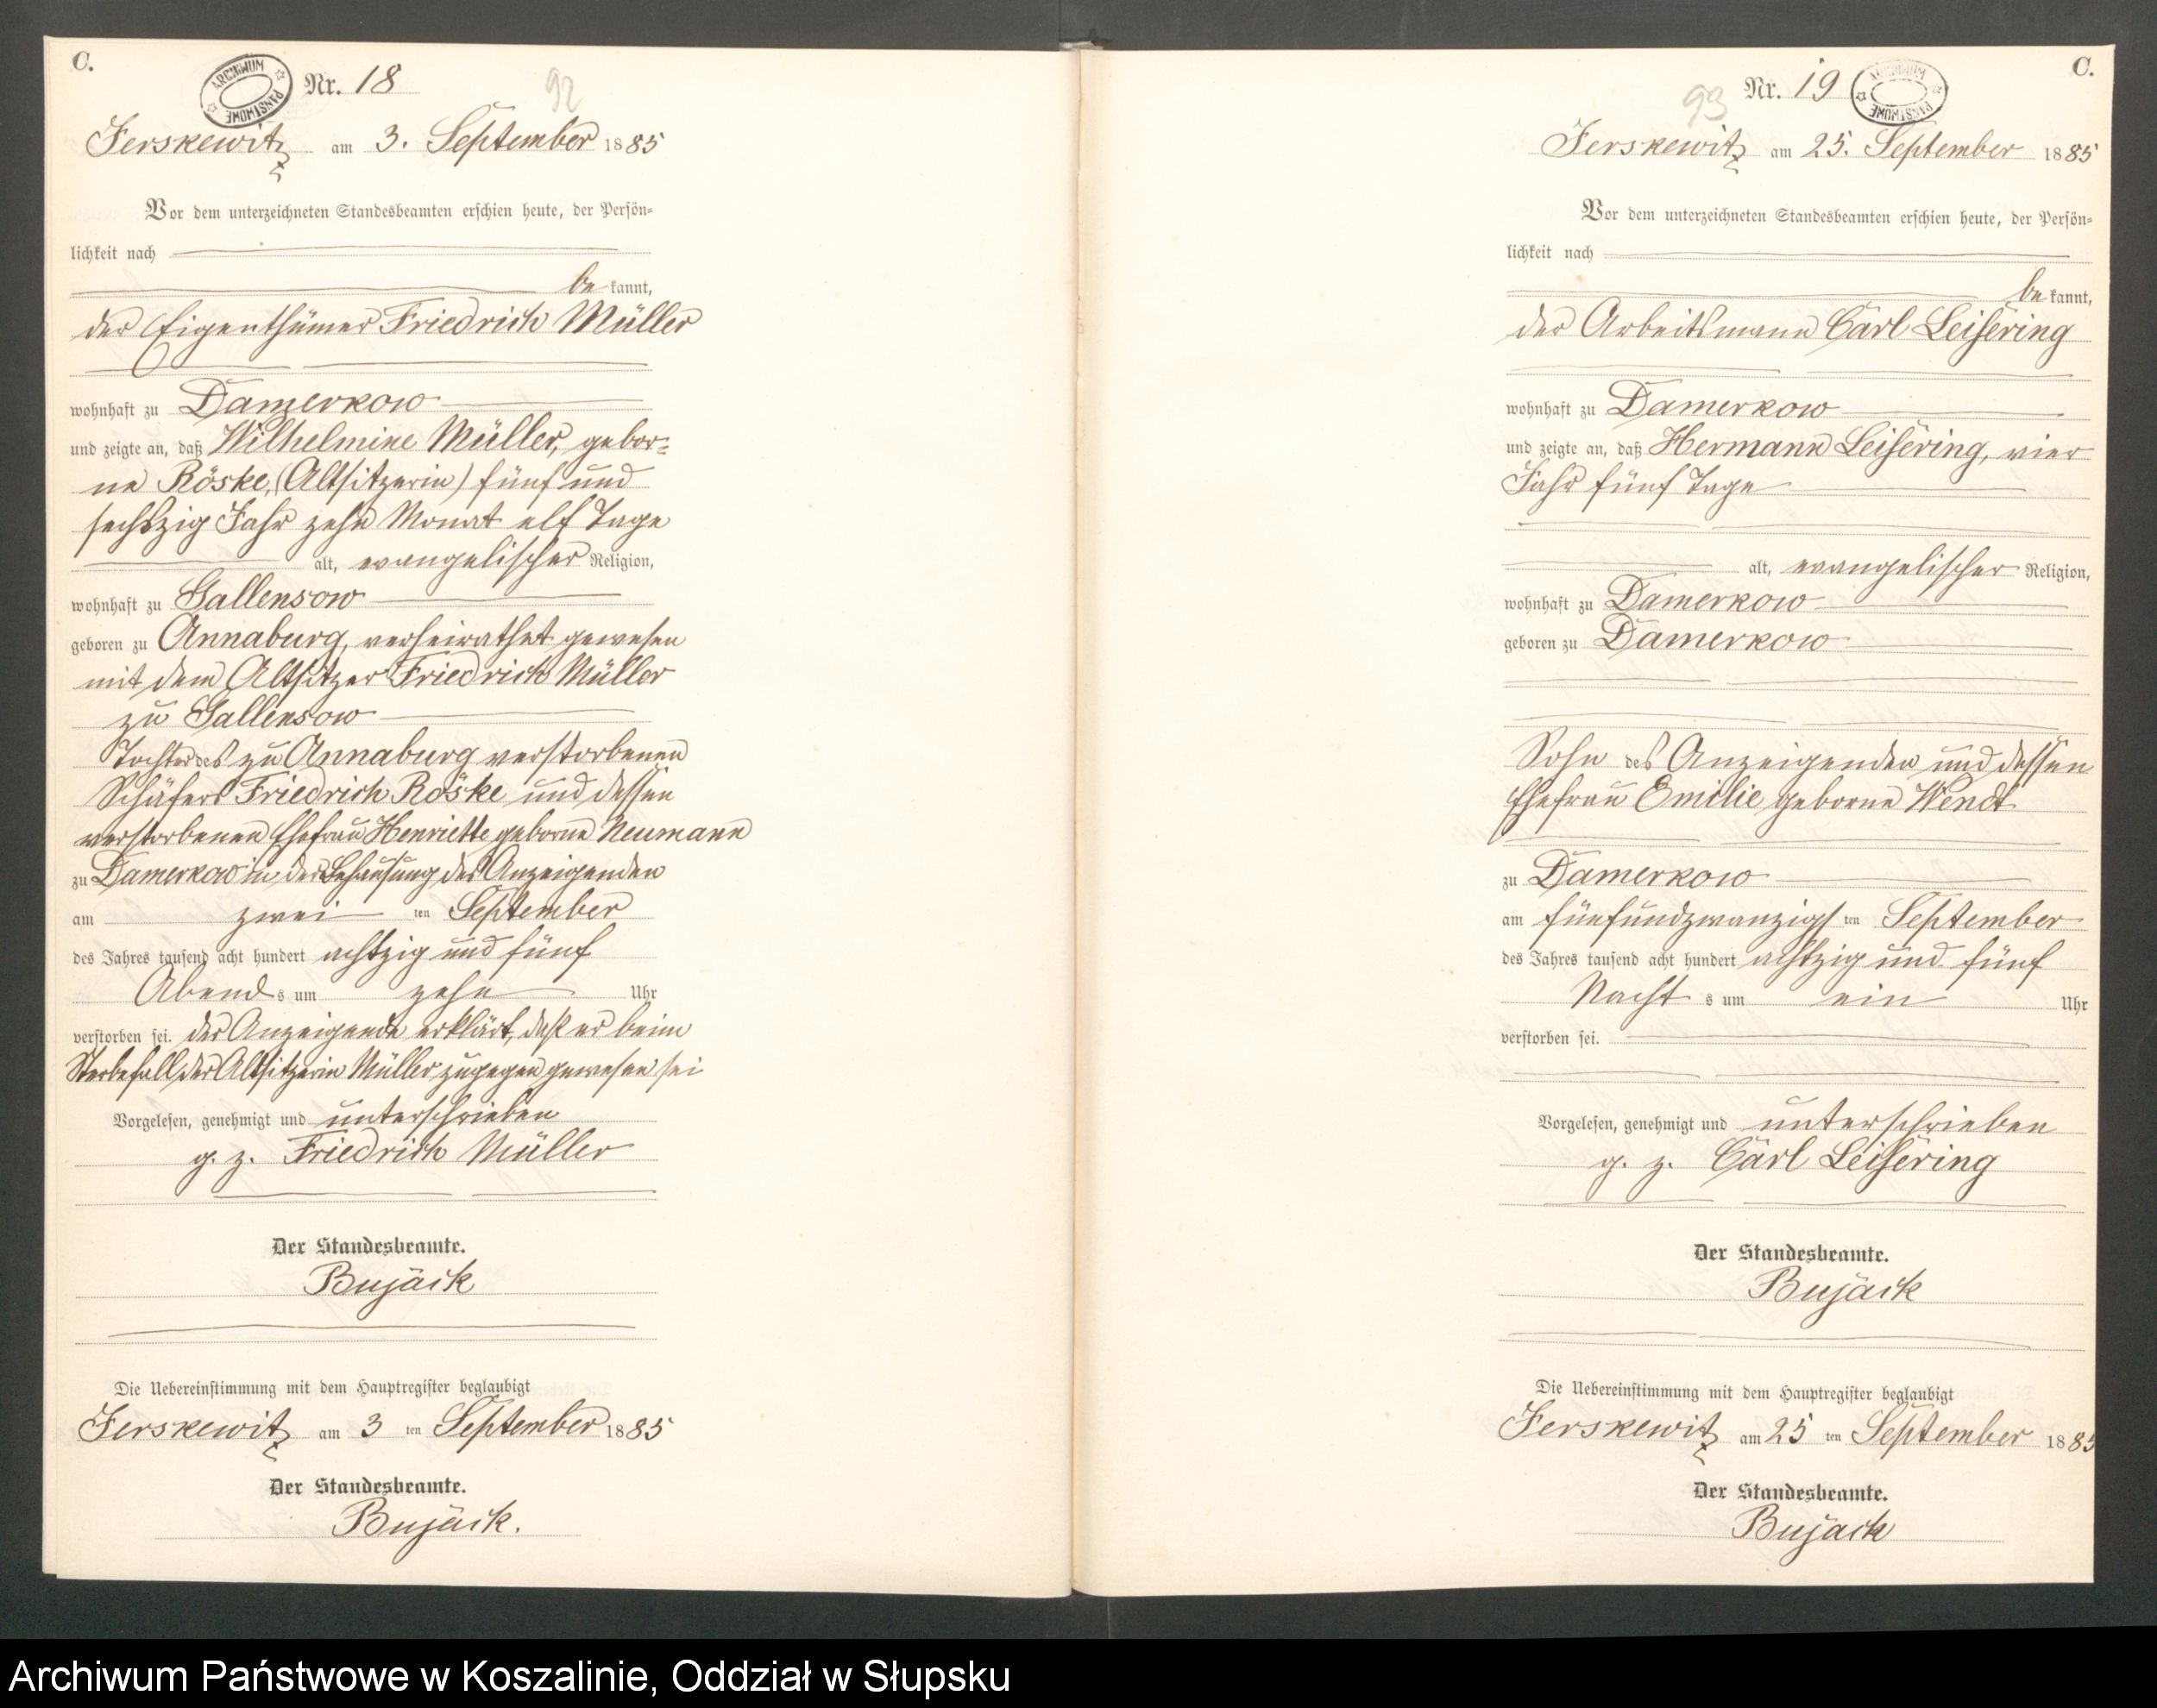 C.
ARCHIWUM PAŃSTWOWE
Nr. 18
92
Jerskewitz am 3. September 1885
Vor dem unterzeichneten Standesbeamten erschien heute, der Persön-
lichkeit nach
be kannt,
der Eigenthümer Friedrich Müller
wohnhaft zu Damerkow
und zeigte an, daß Wilhelmine Müller, gebor-
ne Röske, (Altsitzerin) fünf und
sechszig Jahr zehn Monat elf Tage
alt, evangelischer Religion,
wohnhaft zu Gallensow
geboren zu Annaburg, verheirathet gewesen
mit dem Altsitzer Friedrich Müller
zu Gallensow
Tochter des zu Annaburg verstorbenen
Schäfers Friedrich Röske und dessen
verstorbenen Ehefrau Henriette geborne Neumann
zu Damerkow in der Behausung des Anzeigenden
am zwei ten September
des Jahres tausend acht hundert achtzig und fünf
Abend s um zehn Uhr
verstorben sei. der Anzeigende erklärt, daß er beim
Sterbefall der Altsitzerin Müller zugegen gewesen sei
Vorgelesen, genehmigt und unterschrieben
g. z. Friedrich Müller
Der Standesbeamte.
Bujäck
Die Uebereinstimmung mit dem Hauptregister beglaubigt
Jerskewitz am 3 ten September 1885
Der Standesbeamte.
Bujäck.
C.
Nr. 19
ARCHIWUM PAŃSTWOWE
93
Jerskewitz am 25. September 1885
Vor dem unterzeichneten Standesbeamten erschien heute, der Persön-
lichkeit nach
be kannt,
der Arbeitsmann Carl Leisering
wohnhaft zu Damerkow
und zeigte an, daß Hermann Leisering, vier
Jahr fünf Tage
alt, evangelischer Religion,
wohnhaft zu Damerkow
geboren zu Damerkow
Sohn des Anzeigenden und dessen
Ehefrau Emilie geborne Wendt
zu Damerkow
am fünfundzwanzigs ten September
des Jahres tausend acht hundert achtzig und fünf
Nacht s um ein Uhr
verstorben sei.
Vorgelesen, genehmigt und unterschrieben
g. z. Carl Leisering
Der Standesbeamte.
Bujäck
Die Uebereinstimmung mit dem Hauptregister beglaubigt
Jerskewitz am 25 ten September 1885
Der Standesbeamte.
Bujäck
Archiwum Państwowe w Koszalinie, Oddział w Słupsku